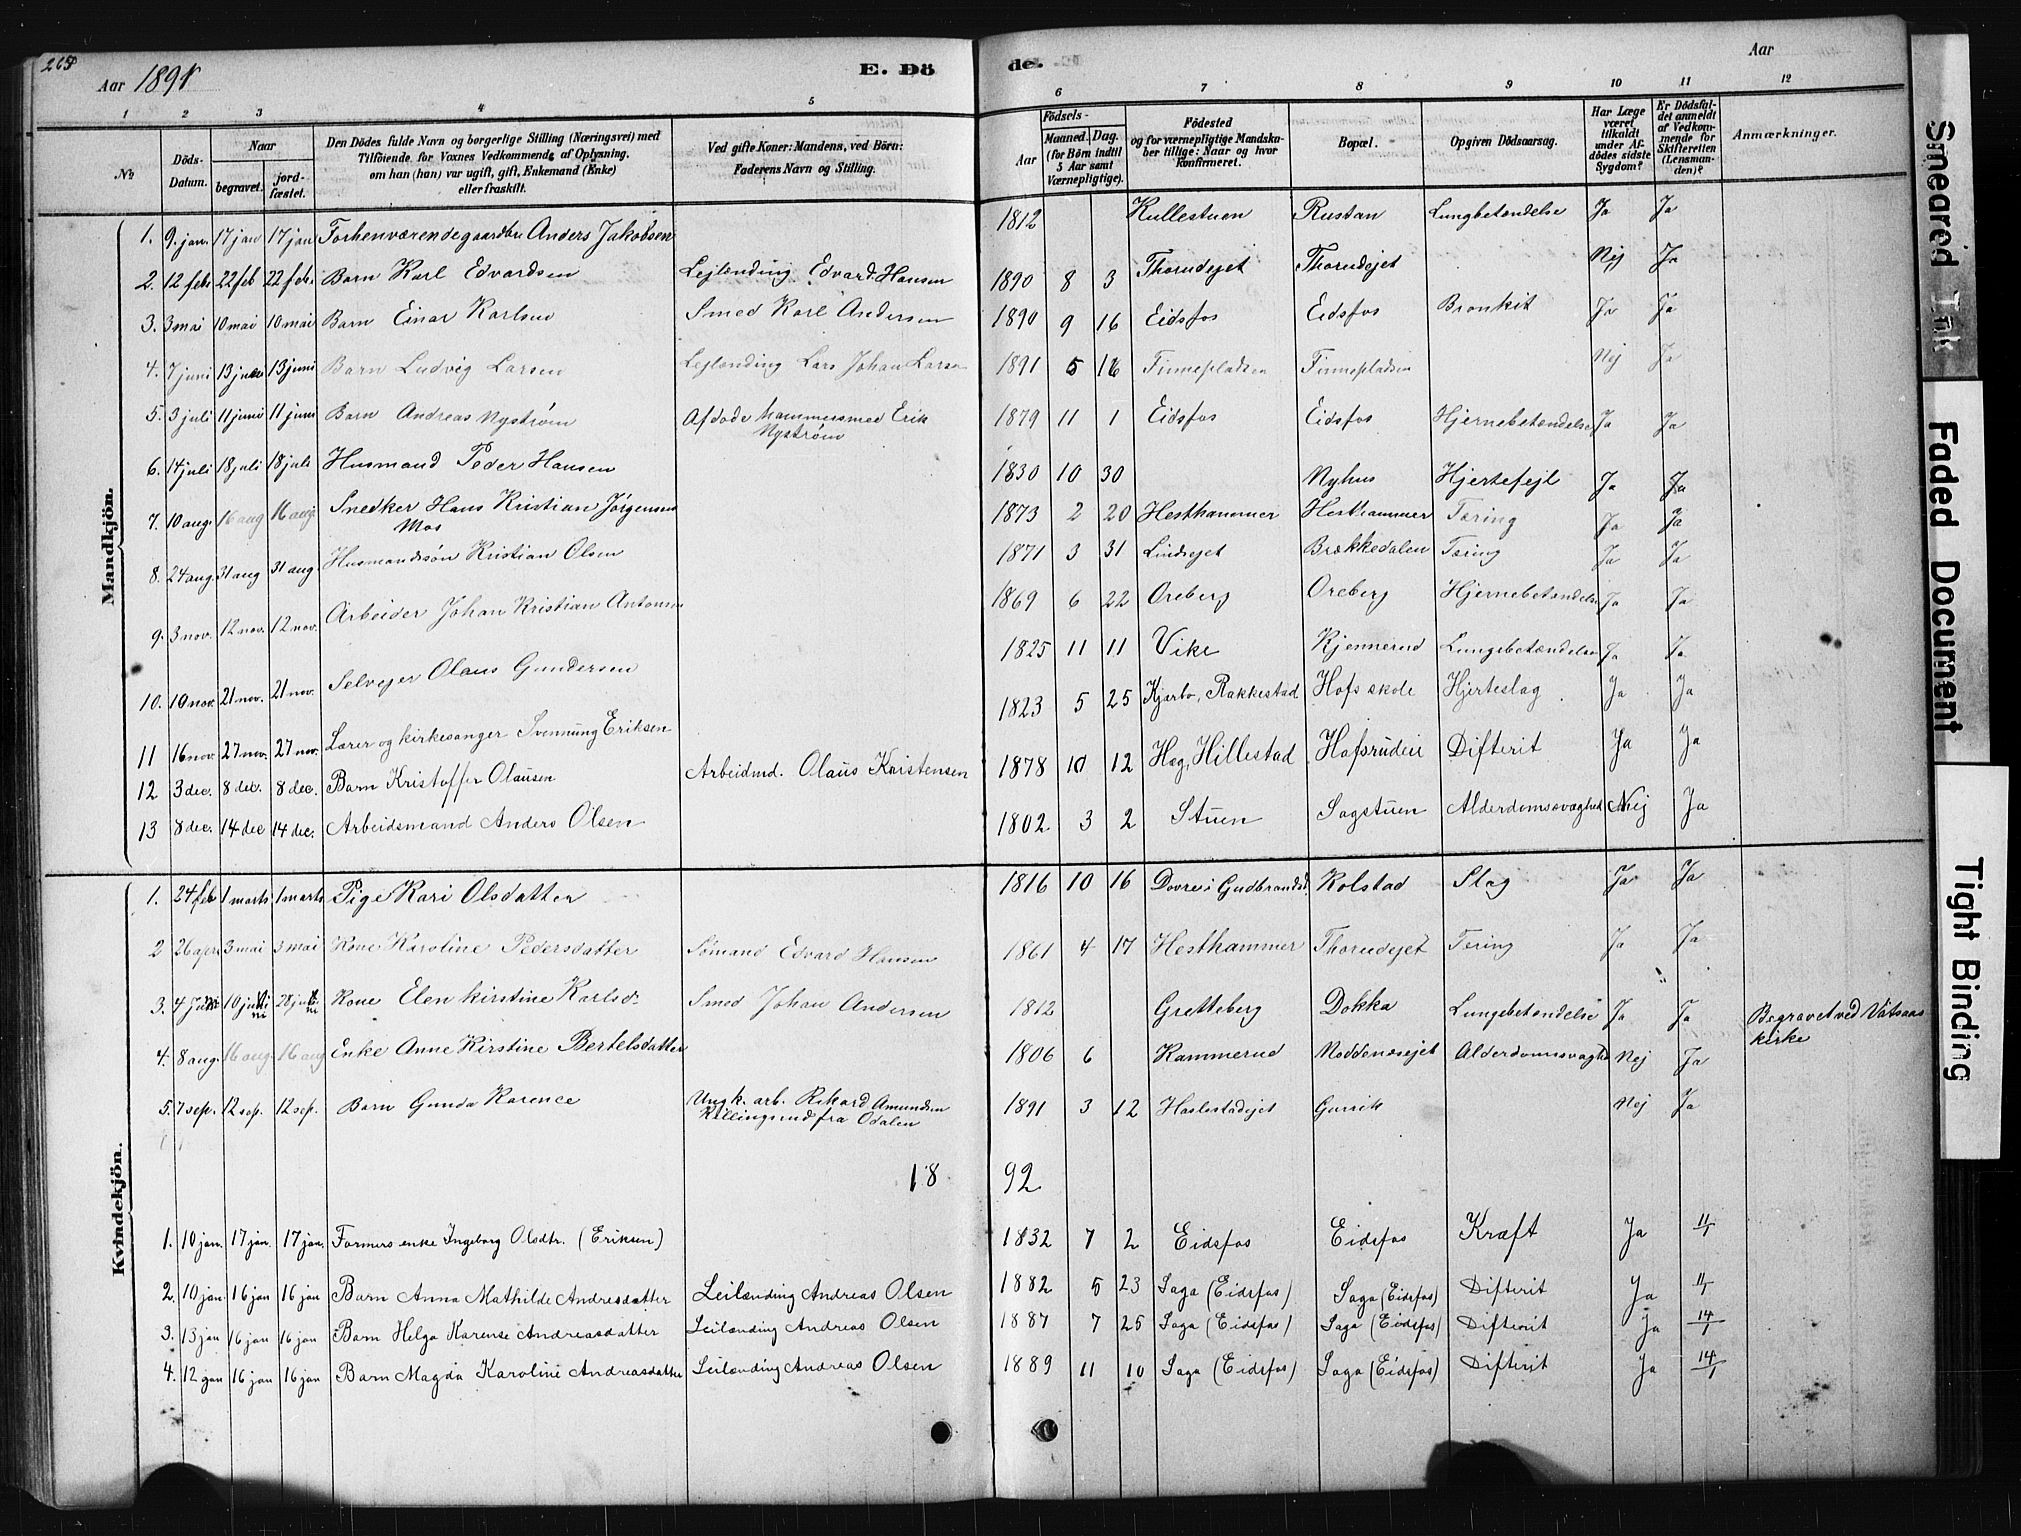 265
Aar 1891
E. Dö
de.
Aar
1 2 3 4 5 6 7 8 9 10 11 12
No
Döds-Datum.
Naar
begravet.
jord-fæstet.
Den Dödes fulde Navn og borgerlige Stilling (Næringsvei) med
Tilföiende for Voxnes Vedkommende af Oplysning.
om han (hun) var ugift, gift, Enkemand (Enke)
eller fraskilt.
Ved gifte Koner: Mandens, ved Börn:
Faderens Navn og Stilling.
Födsels-
Aar
Maaned. Dag.
(for Börn indtil
5 Aar samt
Værnepligtige).
Födested
og for værnepligtige Mandska-
ber tillige: Naar og hvor
Konfirmeret.
Bopæl.
Opgiven Dödsaarsag.
Har Læge
været
tilkaldt
under Af-
dödes sidste
Sygdom?
Er Dödsfal-
det anmeldt
af Vedkom-
mende for
Skifteretten
(Lensman-
den)?
Anmærkninger.
Mandkjön.
1. 9. jan. 17 jan 17 jan Forhenværende gaardbr Anders Jakobsen 1812 Kullestuen Rustan Lungbetændelse Ja Ja
2. 12 feb. 22 feb 22 feb. Barn Karl Edvardsen Lejlending Edvard Hansen 1890 8 3 Thorudejet Thorudejet Nej Ja
3. 3 mai 10 mai 10 mai Barn Einar Karlsen Smed Karl Andersen 1890 9 16 Eidsfos Eidsfos Bronkit Ja Ja
4. 7 juni 13 juni 13 juni Barn Ludvig Larsen Lejlending Lars Johan Larsen 1891 5 16 Finnepladsen Finnepladsen Nej Ja
5. 3 juli 11 juni 11 juni Barn Andreas Nystrøm Afdøde hammersmed Erik
Nystrøm 1879 11 1 Eidsfos Eidsfos Hjernebetændelse Ja Ja
6. 14 juli 18 juli 18 juli Husmand Peder Hansen 1830 10 30 Nyhus Hjertefejl Ja Ja
7. 10 aug. 16 aug 16 aug. Snedker Hans Kristian Jørgensen
Mos 1873 2 20 Hesthammer Hesthammer Tæring Ja Ja
8. 24 aug. 31 aug 31 aug. Husmandssøn Kristian Olsen 1871 3 31 Lindsejet Brækkedalen Tæring Ja Ja
9. 3 nov. 12 nov. 12 nov. Arbeider Johan Kristian Antonsen 1869 6 22 Oreberg Oreberg Hjernebetændelse Ja Ja
10. 10 nov. 21 nov. 21 nov. Selvejer Olaus Gundersen 1825 11 11 Vike Kjennerud Lungebetændelse Ja Ja
11 16 nov. 27 nov. 27 nov. Lærer og kirkesanger Svennung Eriksen 1823 5 25 Kjærbo, Rakkestad Hofs skole Hjerteslag Ja Ja
12 3 dec. 8 dec. 8 dec. Barn Kristoffer Olausen Arbeidmd. Olaus Kristensen 1878 10 12 Hag, Hillestad Hofsrudeie Difterit Ja Ja
13 8 dec. 14 dec 14 dec. Arbeidsmand Anders Olsen 1802 3 2 Stuen Sagstuen Alderdomssvaghed Nej Ja
Kvindekjön.
1. 24 feb 1 marts 1 marts Pige Kari Olsdatter 1816 10 16 Dovre i Gudbrandsd. Kolstad Slag Ja Ja
2 26 april 3 mai 3 mai Kone Karoline Pedersdatter Sømand Edvard Hansen 1861 4 17 Hesthammer Thorudejet Tæring Ja Ja
3. 4 10 28 Kone Elen kirstine Karlsd. Smed Johan Andersen 1812 Gretteberg Dokka Lungebetændelse Ja Ja Begravet ved Vatsaas
kirke
4. 8 aug. 16 aug. 16 aug Enke Anne Kirstine Bertelsdatter 1806 6 Kammerud Noddenesejet Alderdomsvaghd Nej Ja
5. 7 sep. 12 sep. 12 sep. Barn Gunda Karence Ungk. arb. Rikard Amundsen
Killingsrud fra Odalen 1891 3 12 Haslestadejet Gusrik Nej Ja
18 92
1. 10 jan. 17 jan. 17 jan. Formers enke Ingeborg Olsdtr. (Eriksen) 1832 7 2 Eidsfos Eidsfos Kræft Ja 11/1
2. 10 jan. 16 jan 16 jan Barn Anna Mathilde Andreasdatter Leilænding Andreas Olsen 1882 5 23 Saga (Eidsfos) Saga (Eidsfos) Difterit Ja 11/1
3. 13 jan 16 jan 16 jan Barn Helga Karense Andreasdatter Leilænding Andreas Olsen 1887 7 25 Saga (Eidsfos) Saga (Eidsfos) Difterit Ja 14/1
4. 12 jan 16 jan 16 jan Barn Magda Karoline Andreasdatter Leilænding Andreas Olsen 1889 11 10 Saga (Eidsfos) Saga (Eidsfos) Difterit Ja 14/1
Smeared Ink
Faded Document
Tight Binding